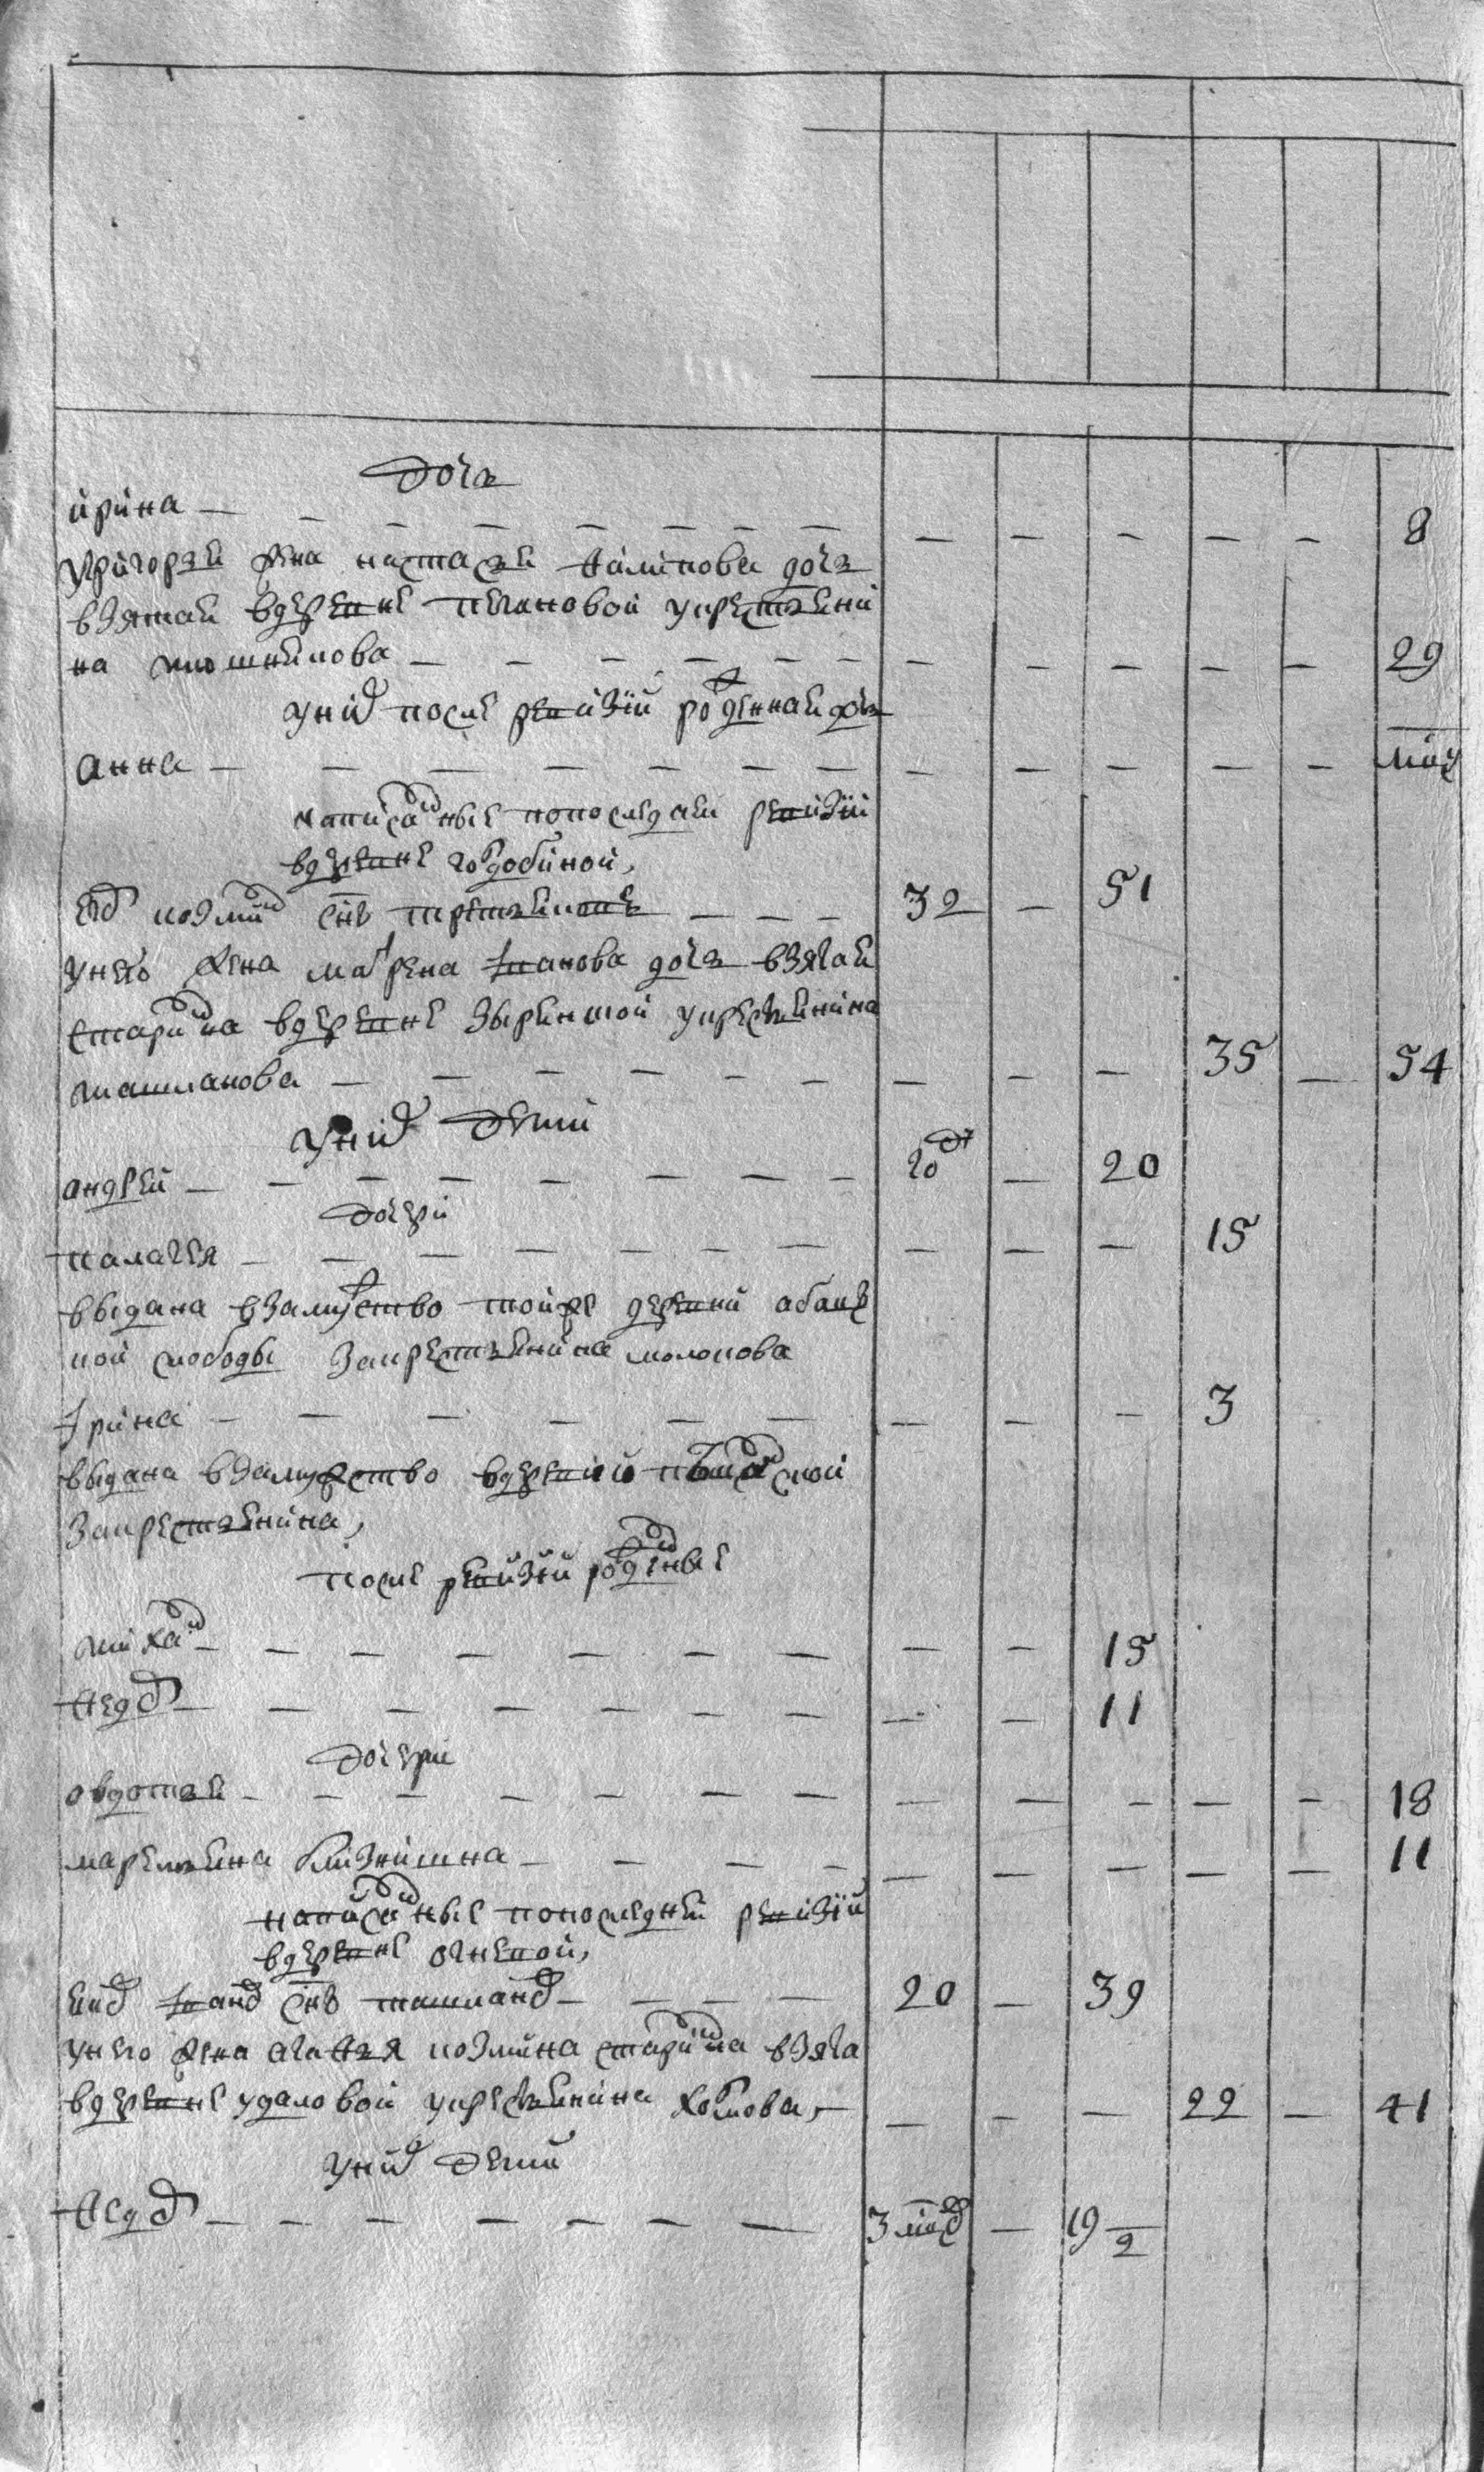 дочь
ирина — — — — — — — — — — — — — 8
григорья жена настасья филипова дочь
взятая вдеревне пегановой укрестьяни
на плюшникова — — — — — — — — — — — 29
уних после ревизии рожденная дочь
анна — — — — — — — — — — — —
написанные попоследней ревизии
вдеревне
козмин сын третьяковъ — — — 32 — 51
унего жена матрена иванова дочь взятая
старинна вдеревне зырянской укрестьянина
ташланова — — — — — — — — — 35 — 54
уних дети
андрей — — — — — — — — год — 20
дочери
палагея — — — — — — — — — — 15
выдана взамужство тойже деревни абац
кой слободы закрестьянина молокова
ирина — — — — — — — — — 3
выдана взамужство вдеревню
закрестьянина,
после ревизии рожденные
михаил — — — — — — — — 15
федор — — — — — — — — — 11
дочери
овдотья — — — — — — — — — — — — 18
маремьяна близнишна — — — — — — — — — 11
написанные попоследней ревизии
вдеревне огневой,
иван сын ташланов — — — — 20 — 39
унего жена агафья козмина старинна взята
вдеревне удаловой укрестьянина — — — — 22 — 41
уних дети
федор — — — — — — — 3 — 19 2